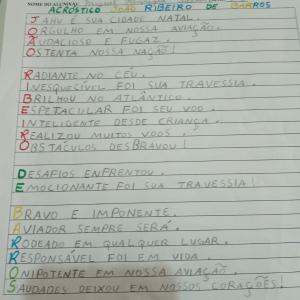 NOME DO ALUNO(A):
ACRÓSTICO JOÃO RIBEIRO DE BARROS
JAHU É SUA CIDADE NATAL.
ORGULHO EM NOSSA AVIAÇÃO.
AUDACIOSO E FUGAZ.
OSTENTA NOSSA NAÇÃO!
RADIANTE NO CÉU.
INESQUECÍVEL FOI SUA TRAVESSIA.
BRILHOU NO ATLÂNTICO.
ESPETACULAR FOI SEU VOO.
INTELIGENTE DESDE CRIANÇA.
REALIZOU MUITOS VOOS.
OBSTÁCULOS DESBRAVOU!
DESAFIOS ENFRENTOU.
EMOCIONANTE FOI SUA TRAVESSIA!
BRAVO E IMPONENTE.
AVIADOR SEMPRE SERÁ.
RODEADO EM QUALQUER LUGAR.
RESPONSÁVEL FOI EM VIDA.
ONIPOTENTE EM NOSSA AVIAÇÃO.
SAUDADES DEIXOU EM NOSSOS CORAÇÕES!